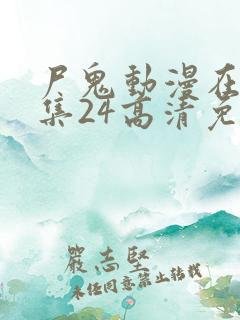 尸鬼動漫在
集24高清免
嚴志堅
未经同意禁止转载